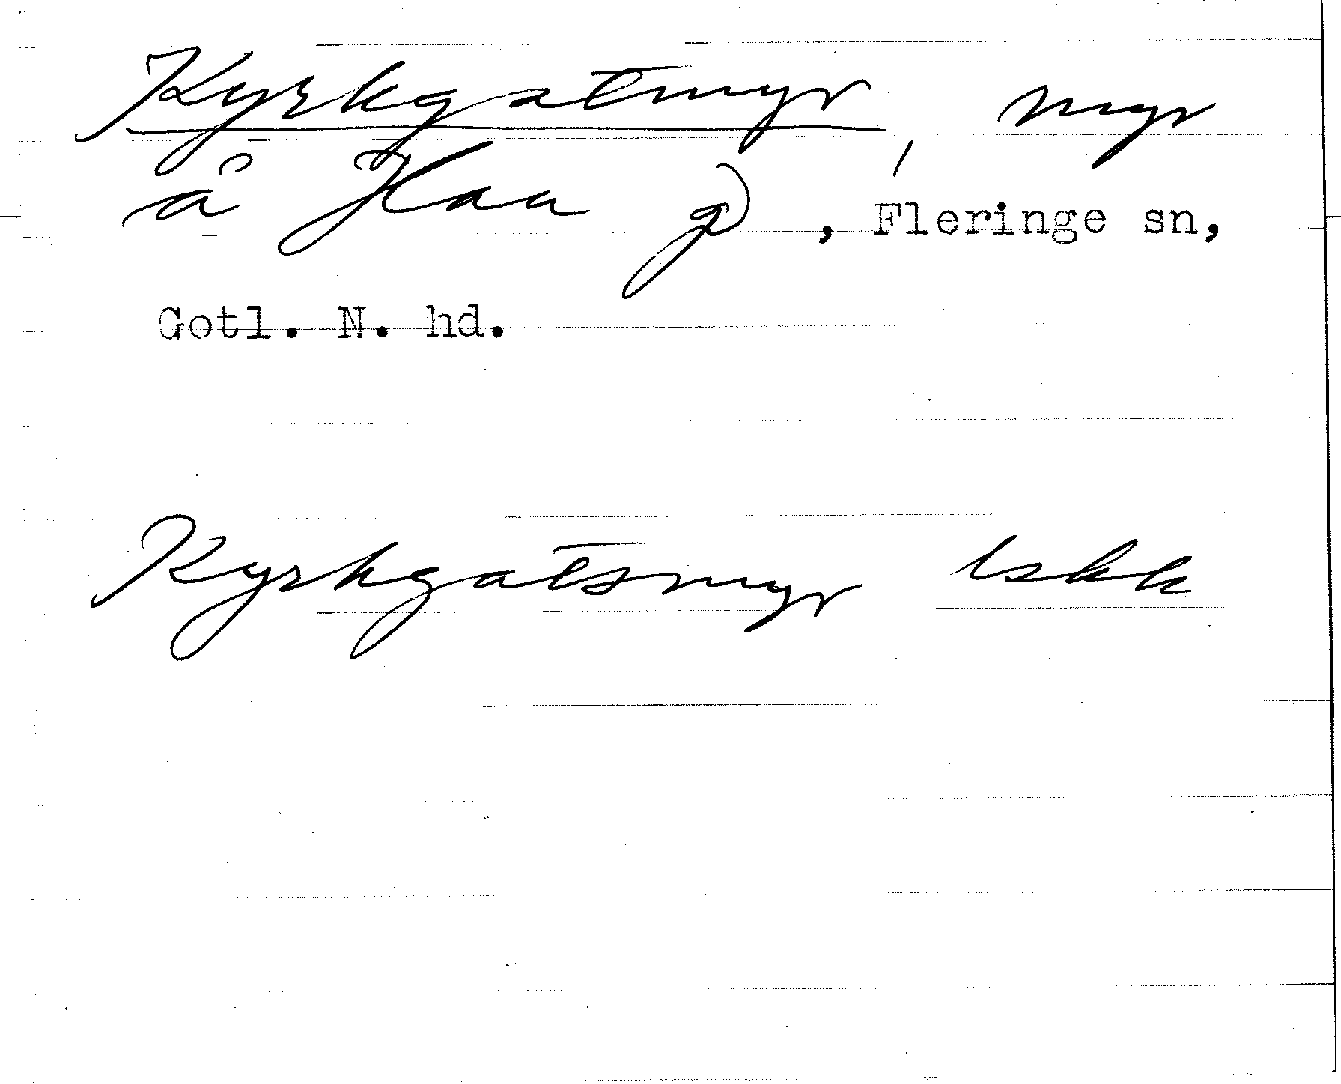 Kyrkgatmyr, myr
å Hau g), Fleringe sn,
Gotl. N. hd.
Kyrkgatsmyr lskk